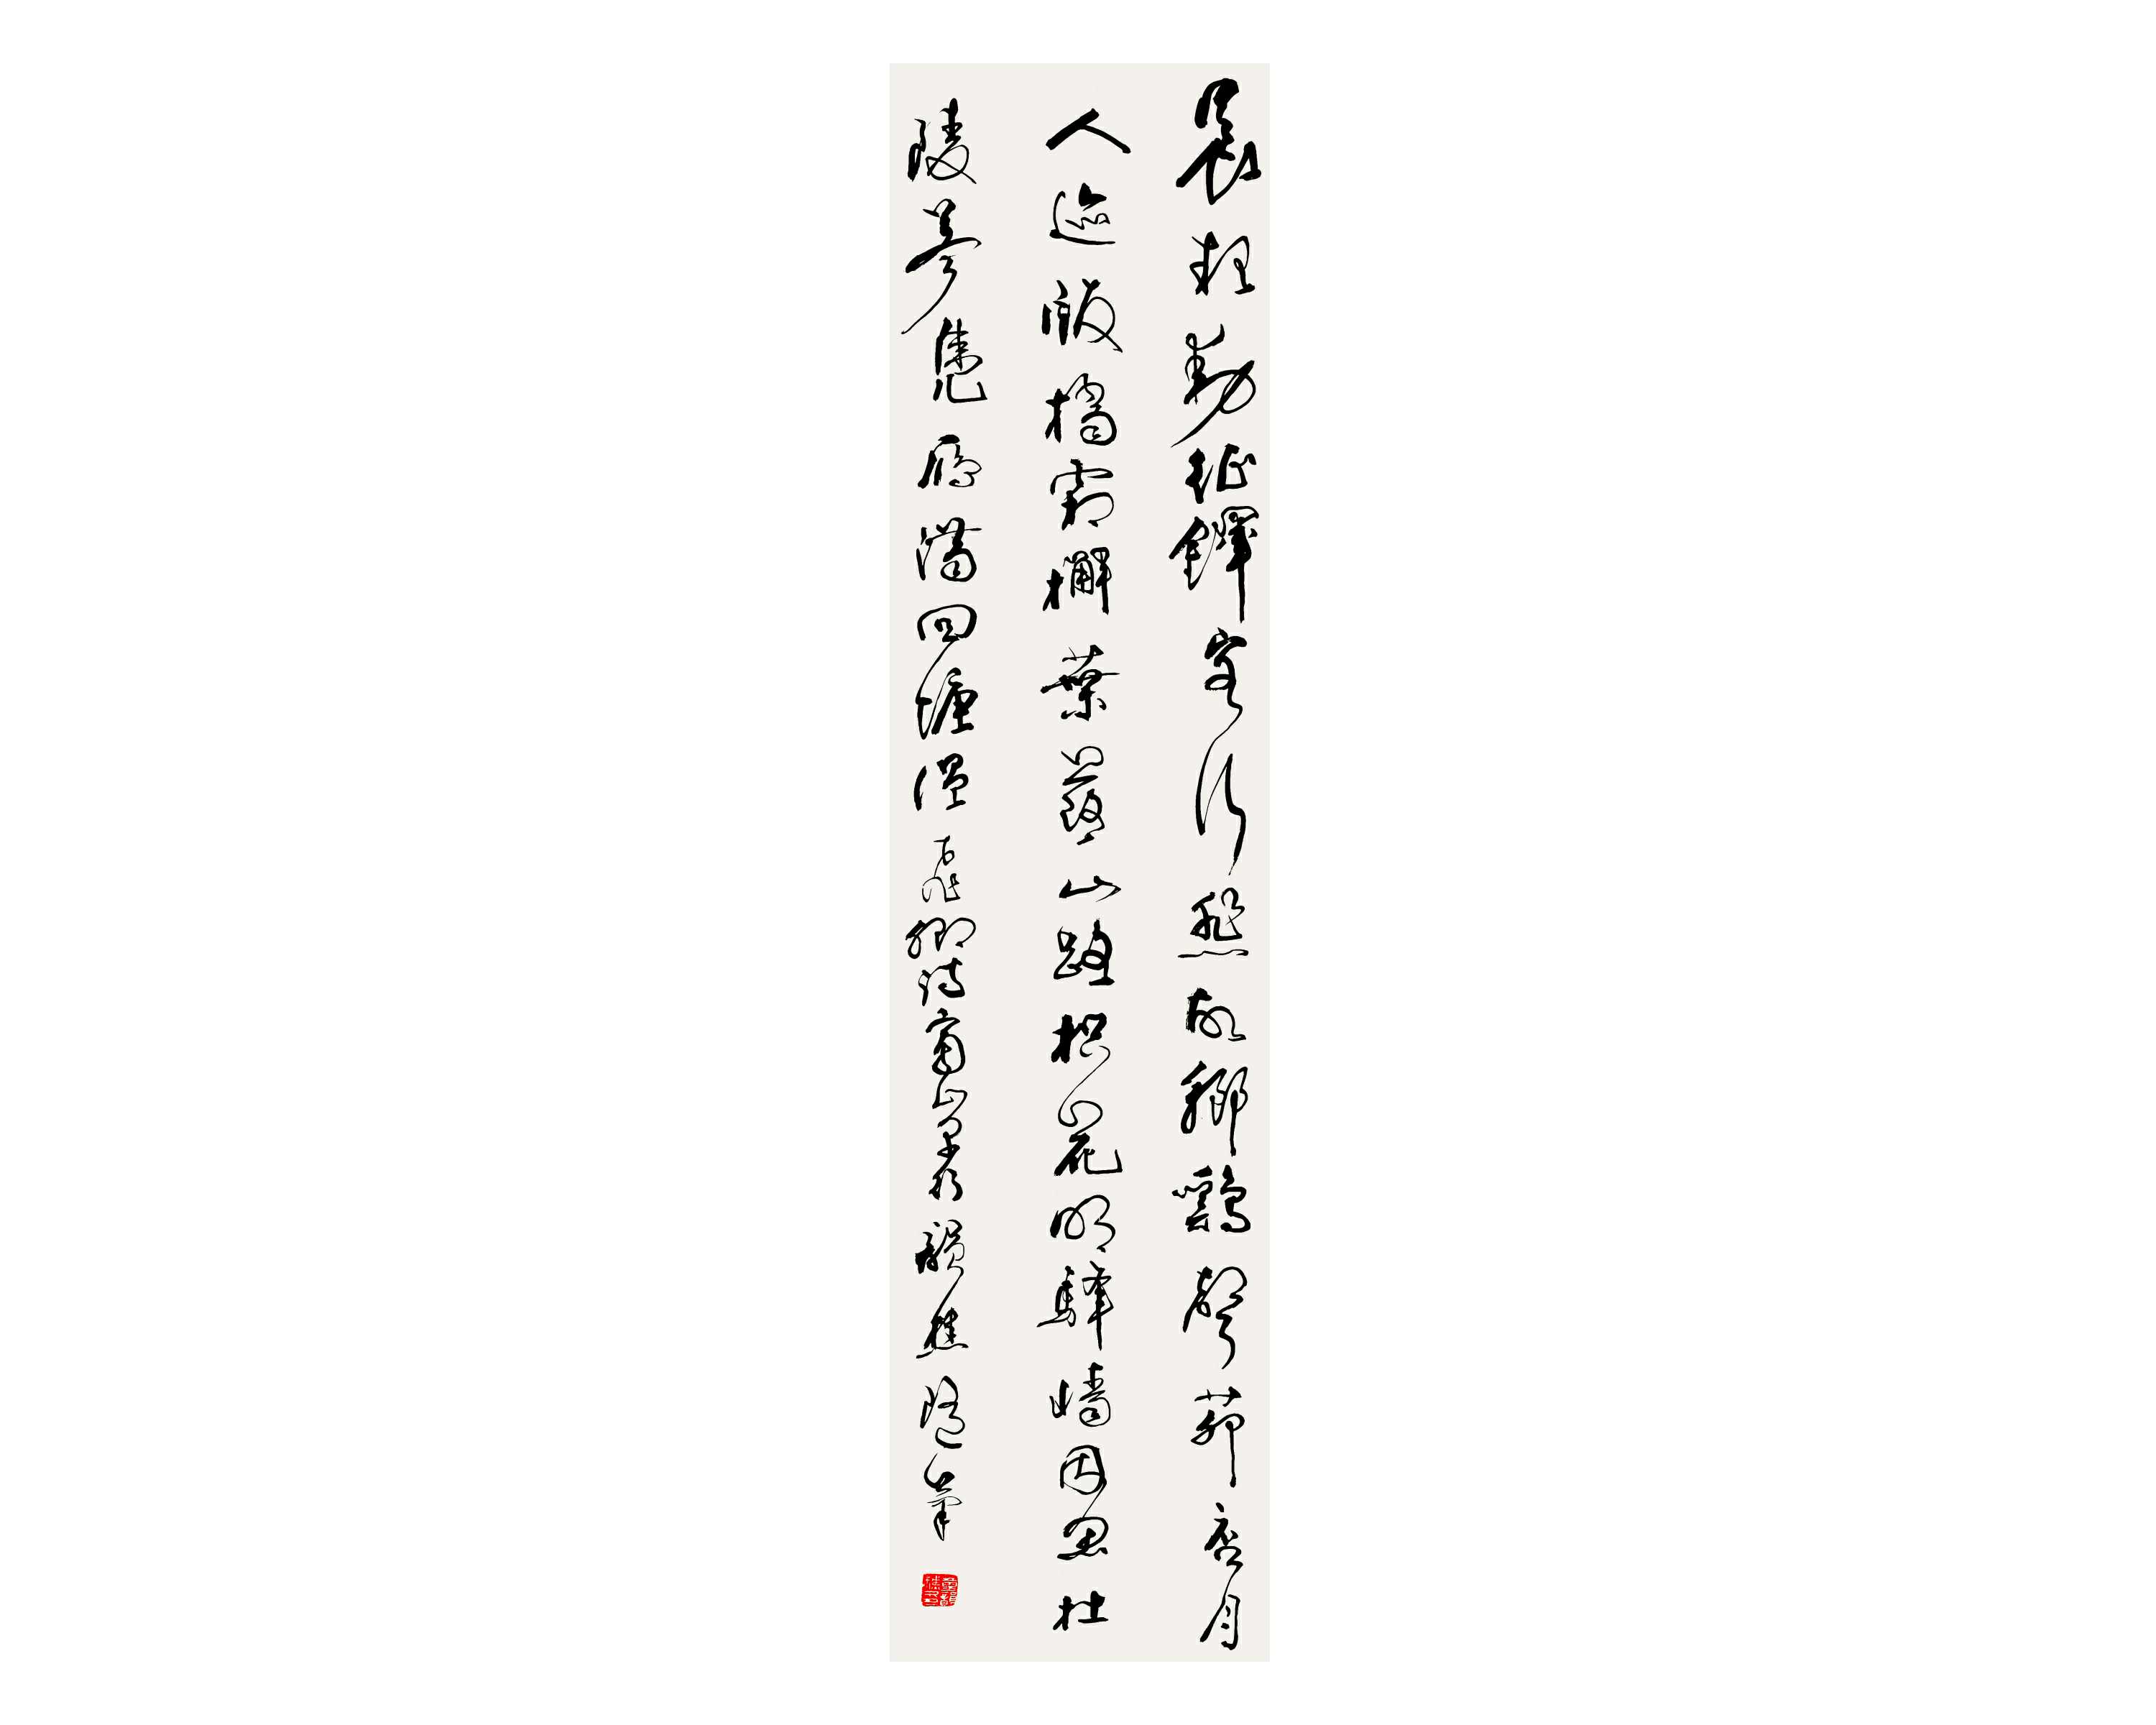 晨起動征鐸客行悲故鄉鷄聲茅店月
人迹板橋霜槲葉落山路枳花明驛牆因思杜
陵夢鳧雁滿回塘溫庭筠詩商山早行